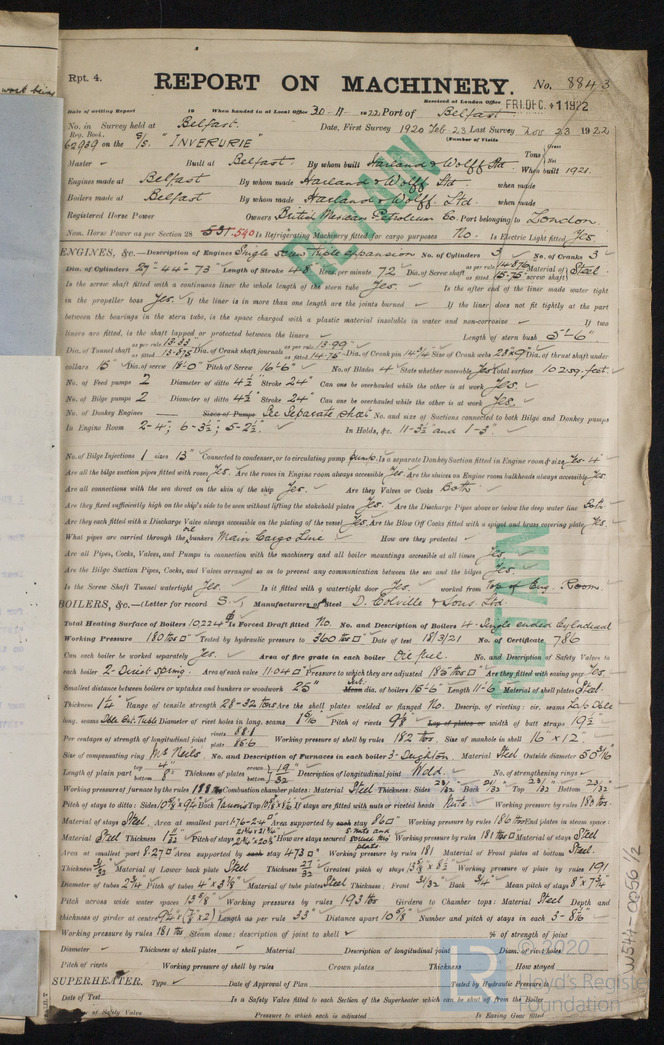 work being
Rpt. 4.
REPORT ON MACHINERY.
No. 8843
Received at London Office FRI. DEC. 1 1922
Date of writing Report 19 When handed in at Local Office 30-11-1922 Port of Belfast
No. in Survey held at Belfast. Date, First Survey 1920 Feb 23 Last Survey Nov 23 1922
Reg. Book. (Number of Visits
62939 on the S/s. "INVERURIE" Tons { Gross Net
Master Built at Belfast. By whom built Harland & Wolff Ltd When built 1921.
Engines made at Belfast By whom made Harland & Wolff Ltd when made
Boilers made at Belfast By whom made Harland & Wolff Ltd. when made
Registered Horse Power Owners British Mexican Petroleum Co. Port belonging to London.
Nom. Horse Power as per Section 28 531 540 Is Refrigerating Machinery fitted for cargo purposes No. Is Electric Light fitted Yes
RETAIN
ENGINES, &c.—Description of Engines Single screw triple expansion No. of Cylinders 3 No. of Cranks 3
Dia. of Cylinders 27"-44"-73" Length of Stroke 48 Revs. per minute 72 Dia. of Screw shaft as per rule 14.876 as fitted 15.75 Material of screw shaft Steel
Is the screw shaft fitted with a continuous liner the whole length of the stern tube Yes. Is the after end of the liner made water tight
in the propeller boss Yes. If the liner is in more than one length are the joints burned If the liner does not fit tightly at the part
between the bearings in the stern tube, is the space charged with a plastic material insoluble in water and non-corrosive If two
liners are fitted, is the shaft lapped or protected between the liners Length of stern bush 5'-6"
Dia. of Tunnel shaft as per rule 13.33 as fitted 13.875 Dia. of Crank shaft journals as per rule 13.99 as fitted 14.75 Dia. of Crank pin 14¾ Size of Crank webs 28"x9" Dia. of thrust shaft under
collars 15" Dia. of screw 18'-0" Pitch of Screw 16'-6" No. of Blades 4 State whether moveable Yes Total surface 102 sq. feet.
No. of Feed pumps 2 Diameter of ditto 4½ Stroke 24" Can one be overhauled while the other is at work Yes.
No. of Bilge pumps 2 Diameter of ditto 4½ Stroke 24" Can one be overhauled while the other is at work Yes.
No. of Donkey Engines Sizes of Pumps See Separate sheet No. and size of Suctions connected to both Bilge and Donkey pumps
In Engine Room 2-4"; 6-3½"; 5-2½". In Holds, &c. 11-3½" and 1-3".
No. of Bilge Injections 1 sizes 13" Connected to condenser, or to circulating pump pump. Is a separate Donkey Suction fitted in Engine room & size Yes-4"
Are all the bilge suction pipes fitted with roses Yes. Are the roses in Engine room always accessible Yes Are the sluices on Engine room bulkheads always accessible Yes.
Are all connections with the sea direct on the skin of the ship Yes. Are they Valves or Cocks Both.
Are they fixed sufficiently high on the ship's side to be seen without lifting the stokehold plates Yes. Are the Discharge Pipes above or below the deep water line Both
Are they each fitted with a Discharge Valve always accessible on the plating of the vessel Yes. Are the Blow Off Cocks fitted with a spigot and brass covering plate Yes.
What pipes are carried through the bunkers Main Cargo Line How are they protected
Are all Pipes, Cocks, Valves, and Pumps in connection with the machinery and all boiler mountings accessible at all times Yes.
Are the Bilge Suction Pipes, Cocks, and Valves arranged so as to prevent any communication between the sea and the bilges Yes.
Is the Screw Shaft Tunnel watertight Yes. Is it fitted with a watertight door Yes. worked from Top of Eng. Room.
RETAIN
BOILERS, &c.—(Letter for record S.) Manufacturers of Steel D. Colville & Sons Ltd
Total Heating Surface of Boilers 10,224 Is Forced Draft fitted No. No. and Description of Boilers 4 Single ended Cylindrical
Working Pressure 180 lbs Tested by hydraulic pressure to 360 lbs Date of test 18/3/21 No. of Certificate 786
Can each boiler be worked separately Yes. Area of fire grate in each boiler Oil fuel. No. and Description of Safety Valves to
each boiler 2-Direct spring. Area of each valve 11.04 Pressure to which they are adjusted 185 lbs Are they fitted with easing gear Yes
Smallest distance between boilers or uptakes and bunkers or woodwork 25" Mean dia. of boilers 15'-6" Length 11'-6 Material of shell plates Steel
Thickness 1¼" Range of tensile strength 28-32 tons Are the shell plates welded or flanged No. Descrip. of riveting: cir. seams Lap Dble
long. seams Dble But. Trebl Diameter of rivet holes in long. seams 1 5/16 Pitch of rivets 9⅛ Lap of plates or width of butt straps 19½"
Per centages of strength of longitudinal joint rivets 88.1 plate 85.6 Working pressure of shell by rules 182 lbs. Size of manhole in shell 16" x 12"
Size of compensating ring McNeils. No. and Description of Furnaces in each boiler 3 Deighton. Material Steel Outside diameter 50 3/16
Length of plain part top 4" bottom 8" Thickness of plates 19/32 Description of longitudinal joint Weld. No. of strengthening rings
Working pressure of furnace by the rules 188 lbs Combustion chamber plates: Material Steel Thickness: Sides 21/32 Back 21/32 Top 21/32 Bottom 23/32
Pitch of stays to ditto: Sides Back Various Top If stays are fitted with nuts or riveted heads Nuts. Working pressure by rules 180 lbs.
Material of stays Steel. Area at smallest part 1.76-2.40 Area supported by each stay 86 Working pressure by rules 186 lbs End plates in steam space:
Material Steel Thickness Pitch of stays How are stays secured Working pressure by rules 181 lbs Material of stays Steel
Area at smallest part 8.27 Area supported by each stay 473 Working pressure by rules 181 Material of Front plates at bottom Steel.
Thickness 31/32 Material of Lower back plate Steel Thickness 27/32 Greatest pitch of stays Working pressure of plate by rules 191
Diameter of tubes 2¾ Pitch of tubes 4" x 3⅞ Material of tube plates Steel Thickness: Front 31/32 Back ¾" Mean pitch of stays 8" x 7¾
Pitch across wide water spaces 13⅝ Working pressures by rules 193 lbs Girders to Chamber tops: Material Steel Depth and
thickness of girder at centre 9¼ x (⅞ x 2) Length as per rule 33" Distance apart 10⅝ Number and pitch of stays in each 3-8½"
Working pressure by rules 181 lbs Steam dome: description of joint to shell % of strength of joint
Diameter Thickness of shell plates Material Description of longitudinal joint Diam. of rivet holes
Pitch of rivets Working pressure of shell by rules Crown plates Thickness How stayed
SUPERHEATER. Type Date of Approval of Plan Tested by Hydraulic Pressure to
Date of Test Is a Safety Valve fitted to each Section of the Superheater which can be shut off from the Boiler
of Safety Valve Pressure to which each is adjusted Is Easing Gear fitted
W344-0056 1/2
© 2020
LR
Lloyd's Register
Foundation